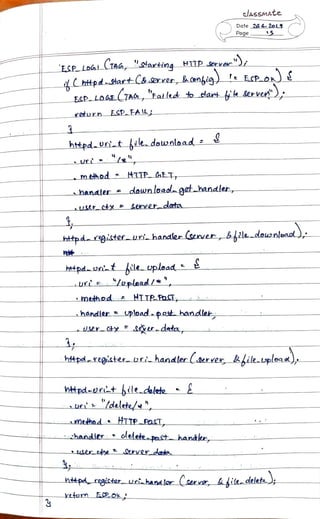 classmate
Date 26-6-2019
Page 13
ESP_LOGI (TAG, "Starting HTTP server");
if (httpd_start (& server, & config) != ESP_OK) {
ESP_LOGE (TAG, "Failed to start file server");
return ESP_FAIL;
}
httpd_uri_t file_download = {
.uri = "/*",
.method = HTTP_GET,
.handler = download_get_handler,
.user_ctx = server_data
};
httpd_register_uri_handler (server, & file_download);
httpd_uri_t file_upload = {
.uri = "/upload/*",
.method = HTTP_POST,
.handler = upload_post_handler,
.user_ctx = server_data,
};
httpd_register_uri_handler (server, & file_upload);
httpd_uri_t file_delete = {
.uri = "/delete/*",
.method = HTTP_POST,
.handler = delete_post_handler,
.user_ctx = server_data
};
httpd_register_uri_handler (server, & file_delete);
return ESP_OK;
}